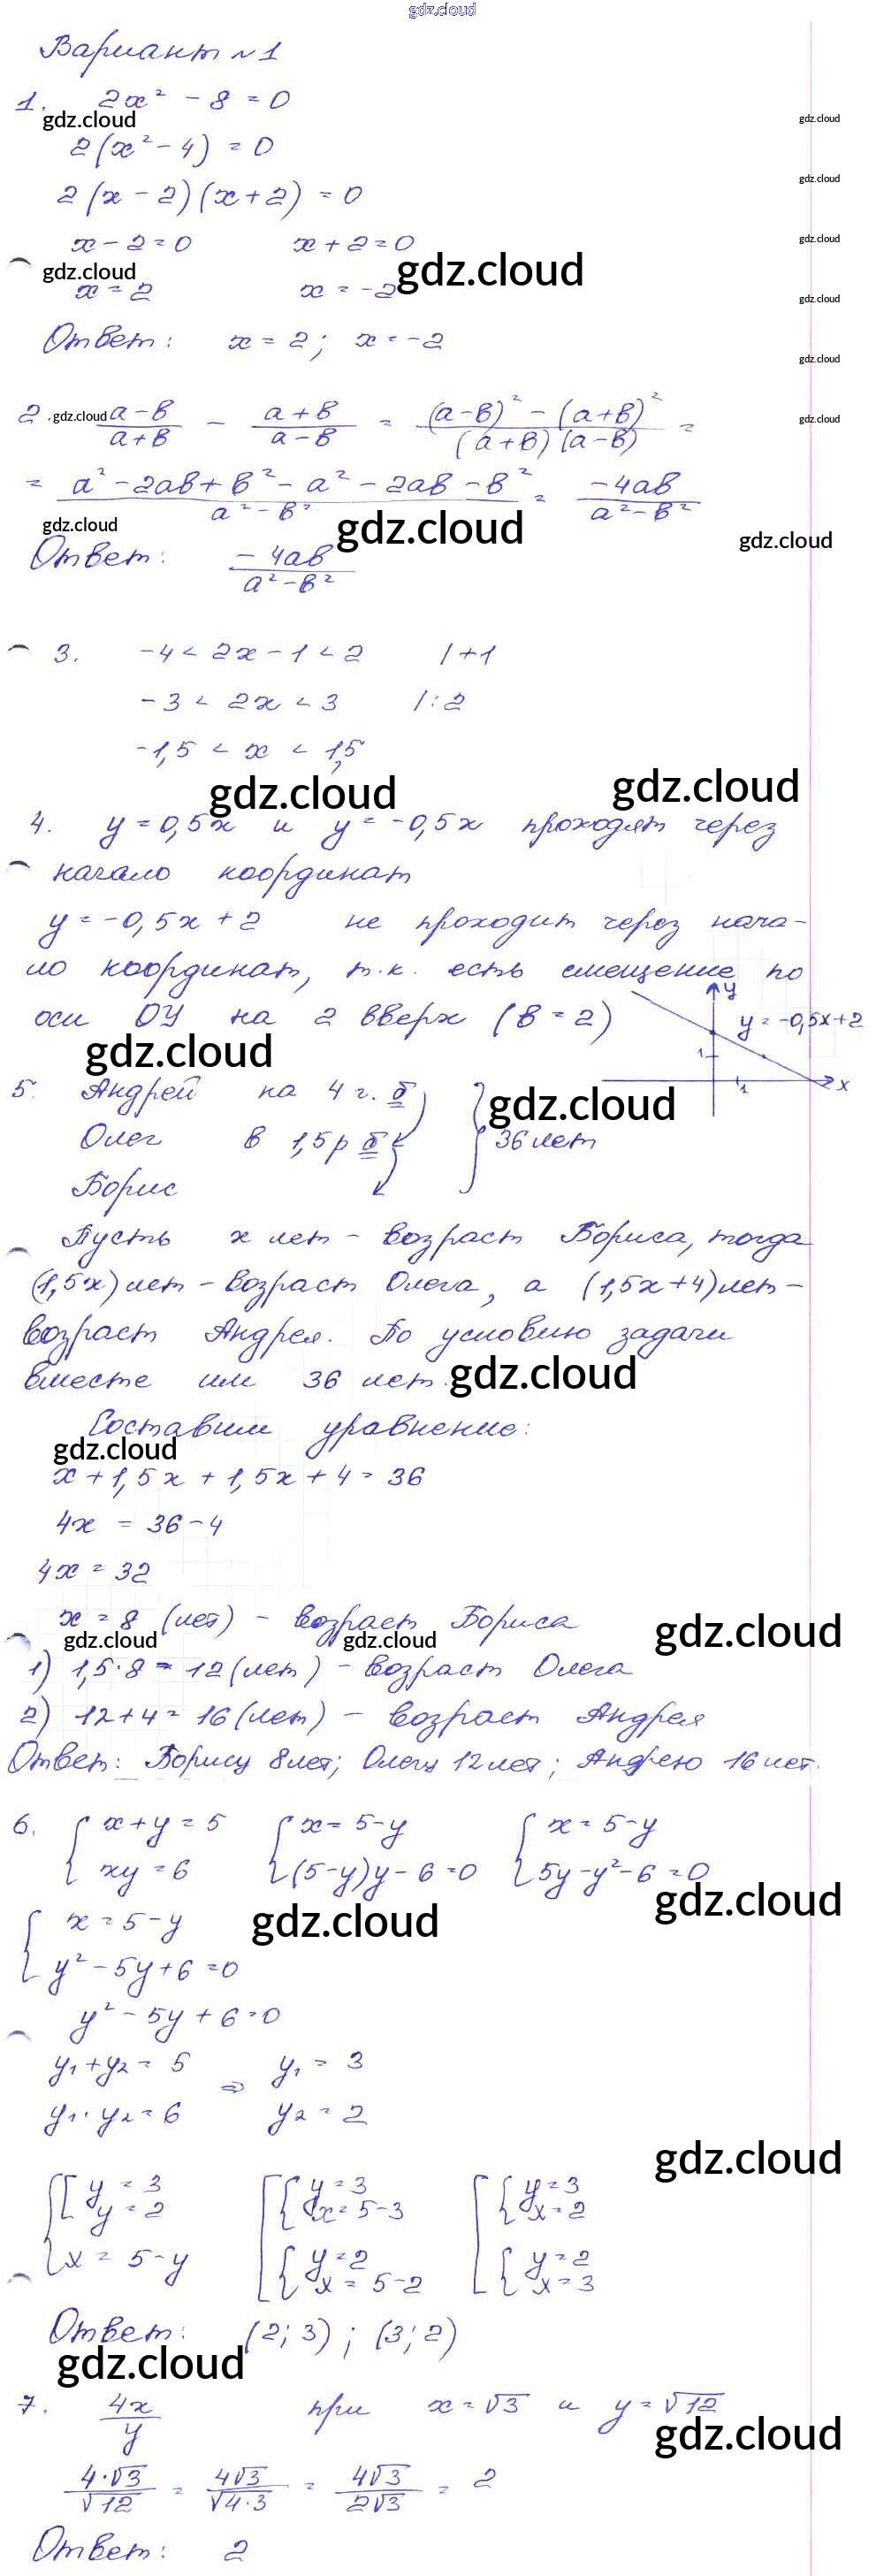 gdz.cloud
Вариант №1
1. 2x² - 8 = 0
gdz.cloud gdz.cloud
2(x² - 4) = 0
gdz.cloud
2(x - 2)(x + 2) = 0
x - 2 = 0 x + 2 = 0 gdz.cloud
gdz.cloud gdz.cloud
x = 2 x = -2
gdz.cloud
Ответ: x = 2; x = -2
gdz.cloud
2. gdz.cloud (a-b)/(a+b) - (a+b)/(a-b) = ((a-b)² - (a+b)²)/((a+b)(a-b)) = gdz.cloud
= (a² - 2ab + b² - a² - 2ab - b²)/(a² - b²) = (-4ab)/(a² - b²)
gdz.cloud gdz.cloud gdz.cloud
Ответ: (-4ab)/(a² - b²)
3. -4 < 2x - 1 < 2 | +1
-3 < 2x < 3 | :2
-1,5 < x < 1,5
gdz.cloud gdz.cloud
4. y = 0,5x и y = -0,5x проходят через
начало координат
y = -0,5x + 2 не проходит через нача-
ло координат, т.к. есть смещение по
оси ОУ на 2 вверх (в = 2)
y
y = -0,5x+2
1
1
x
gdz.cloud
5. Андрей на 4 г. б
gdz.cloud
Олег в 1,5 р б 36 лет
Борис
Пусть x лет - возраст Бориса, тогда
(1,5x) лет - возраст Олега, а (1,5x+4) лет -
возраст Андрея. По условию задачи
вместе им 36 лет. gdz.cloud
Составим уравнение:
gdz.cloud
x + 1,5x + 1,5x + 4 = 36
4x = 36 - 4
4x = 32
x = 8 (лет) - возраст Бориса gdz.cloud
gdz.cloud gdz.cloud
1) 1,5·8 = 12 (лет) - возраст Олега
2) 12+4 = 16 (лет) - возраст Андрея
Ответ: Борису 8 лет; Олегу 12 лет; Андрею 16 лет.
6. { x + y = 5 { x = 5 - y { x = 5 - y
{ xy = 6 { (5-y)y - 6 = 0 { 5y - y² - 6 = 0
gdz.cloud
{ x = 5 - y gdz.cloud
{ y² - 5y + 6 = 0
y² - 5y + 6 = 0
y₁ + y₂ = 5 ⇒ y₁ = 3
y₁ · y₂ = 6 y₂ = 2
gdz.cloud
{ [ y = 3 [ { y = 3 [ { y = 3
y = 2 x = 5-3 x = 2
x = 5 - y { y = 2 { y = 2
x = 5-2 x = 3
Ответ: (2; 3); (3; 2)
gdz.cloud
7. 4x/y при x = √3 и y = √12
gdz.cloud
(4·√3)/√12 = 4√3/√(4·3) = 4√3/2√3 = 2
Ответ: 2